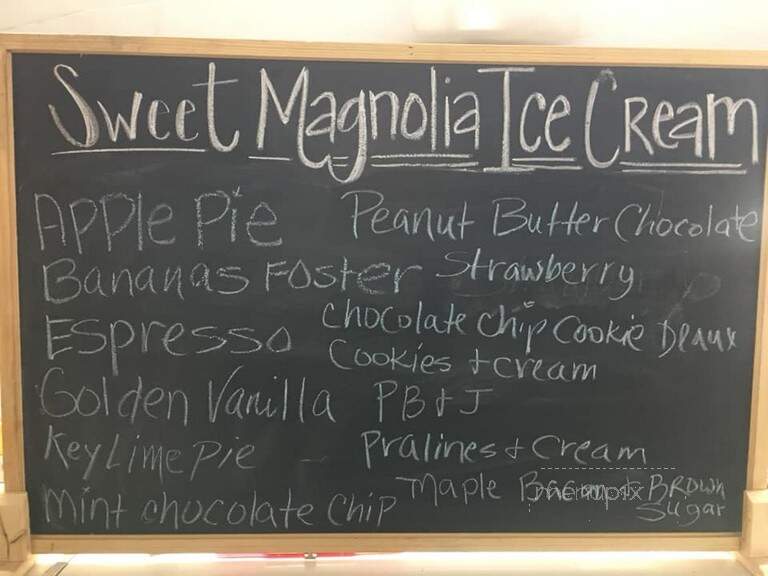 Sweet Magnolia Ice Cream
Apple Pie
Bananas Foster
Espresso
Golden Vanilla
Key Lime Pie
Mint chocolate chip
Peanut Butter Chocolate
Strawberry
Chocolate Chip Cookie Deaux
Cookies + cream
PB + J
Pralines + Cream
Maple Brown
Sugar
menupix